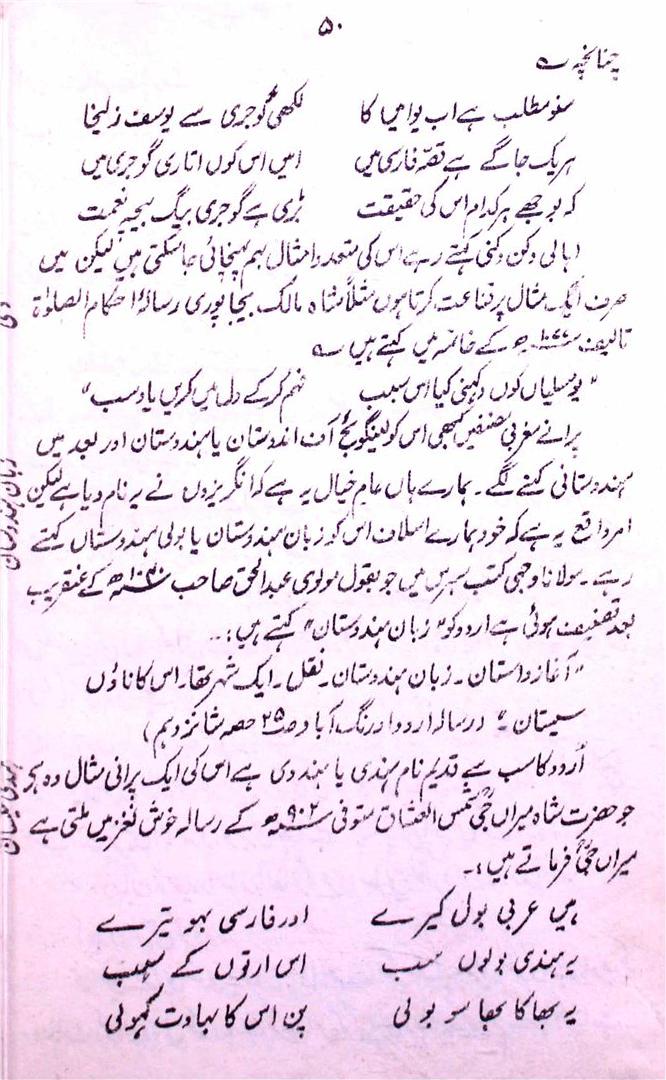 ۵۰
چنانچہ ؎
سنو مطلب ہے اب یو امیں کا لکھی گوجری سے یوسف زلیخا
ہریک جاگے ہے قصّہ فارسی میں امیں اس کوں اتاری گوجری میں
کہ بوجھے ہر کدام اس کی حقیقت بڑی ہے گوجری بیگ بیچہ نعمت
اہالی دکن دکنی کہتے رہے اس کی متعدد امثال بہم پہنچائی جا سکتی ہیں لیکن میں
صرف ایک مثال پر قناعت کرتا ہوں مثلاً شاہ مالک بیجاپوری رسالۂ احکام الصلوٰۃ
تالیف ۱۰۷۷ھ کے خاتمہ میں کہتے ہیں ؎
"یو مسلیاں کوں دکھنی کیا اس سبب فہم کر کے دل میں کریں یاد سب"
پرانے مغربی مصنفین کبھی اس کو لینگویج آف اندوستان یا ہندوستان اور بعد میں
ہندوستانی کہنے لگے۔ ہمارے ہاں عام خیال یہ ہے کہ انگریزوں نے یہ نام دیا ہے لیکن
امر واقع یہ ہے کہ خود ہمارے اسلاف اس کو زبان ہندوستان یا بولی ہندوستاں کہتے
رہے۔ مولانا وجہی کتب سبرس میں جو بقول مولوی عبدالحق صاحب ۱۰۴۰ھ کے عنقریب
بعد تصنیف ہوئی ہے اردو کو "زبان ہندوستان" کہتے ہیں:۔
"آغاز داستان۔ زبان ہندوستان۔ نقل۔ ایک شہر تھا۔ اس کا ناؤں
سیستان" (رسالہ اردو اورنگ آباد ص۲۵ حصہ شانزدہم)
اُردو کا سب سے قدیم نام ہندی یا ہندوی ہے اس کی ایک پرانی مثال وہ ہے
جو حضرت شاہ میراں جی شمس العشاق متوفی ۹۰۲ھ کے رسالہ خوش نغز میں ملتی ہے
میراں جی فرماتے ہیں:۔
ہیں عربی بول کیرے اور فارسی بہوتیرے
یہ ہندی بولوں سب اس ارتوں کے سبب
یہ بھاکا بھا سو بولی پن اس کا بہاوت کھولی
زبان ہندوستان